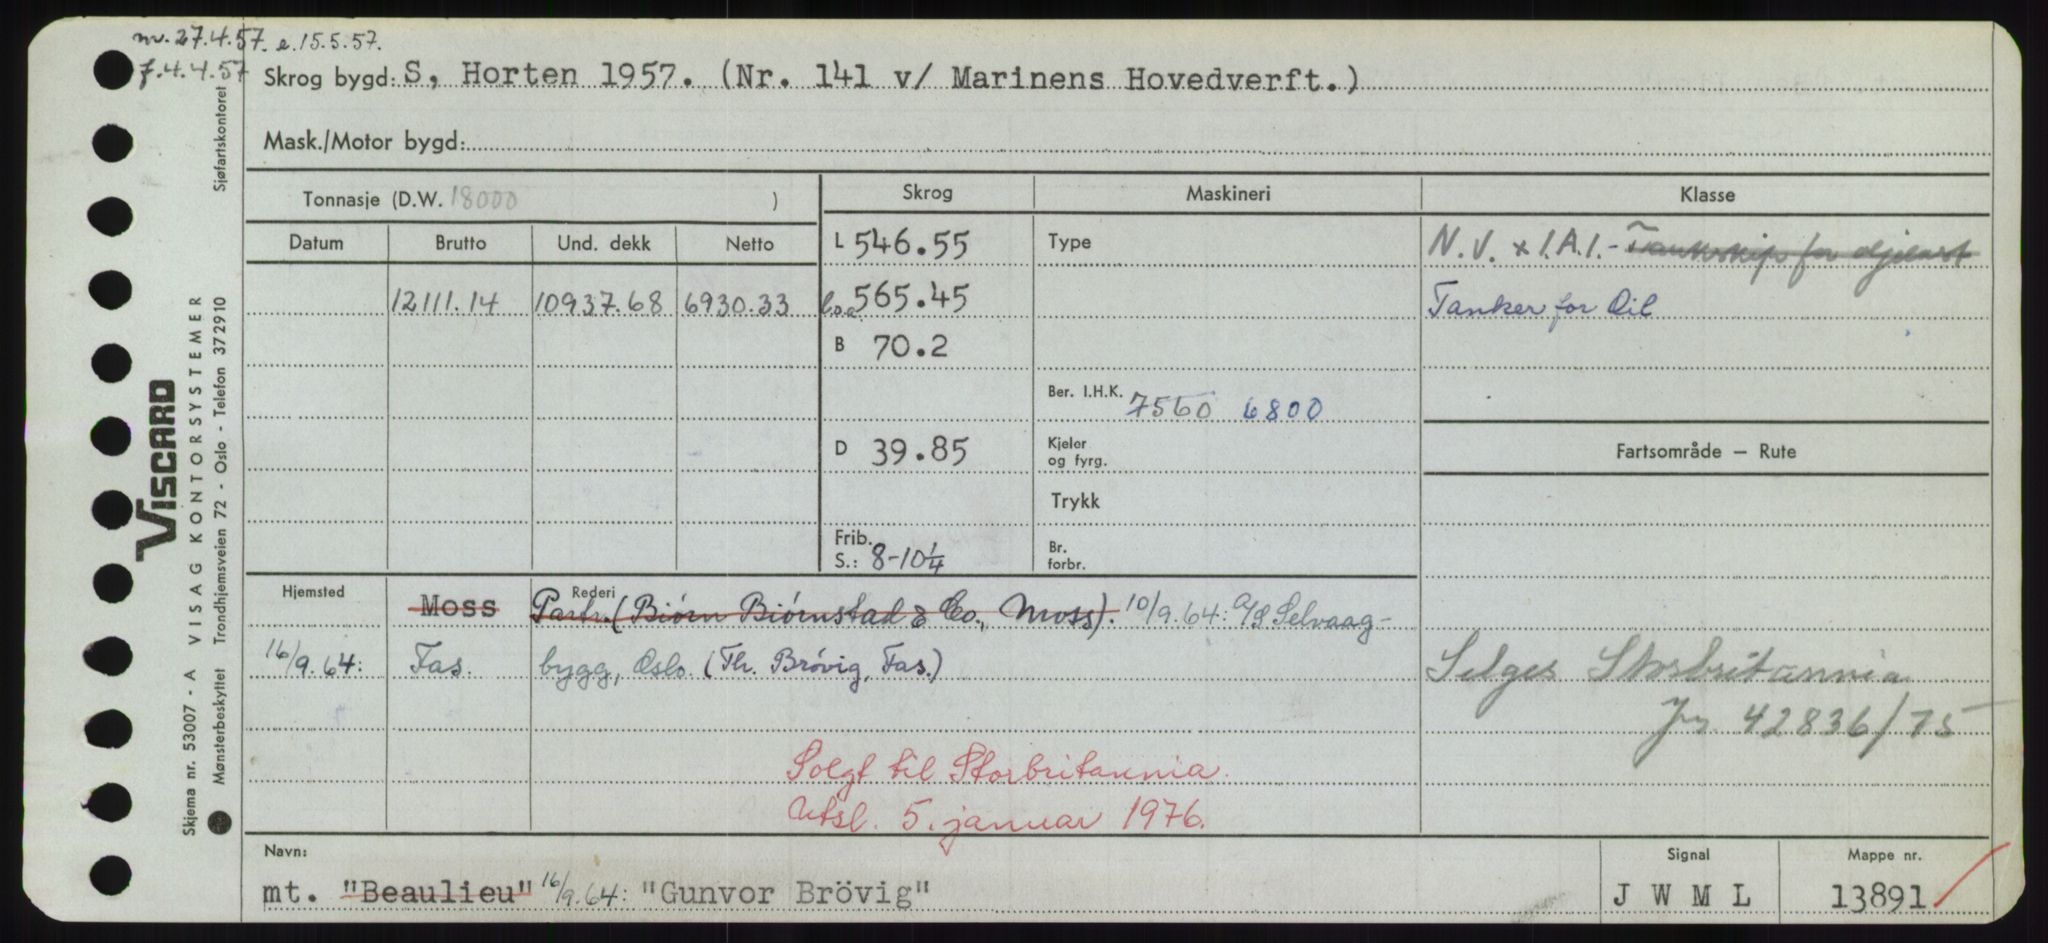 nv. 27.4.57. e. 15.5.57.
f. 4.4.57
Skrog bygd: S, Horten 1957. (Nr. 141 v/ Marinens Hovedverft.)
Mask./Motor bygd:
Tonnasje (D.W. 18000 )
Skrog
Maskineri
Klasse
Datum
Brutto
Und. dekk
Netto
L 546.55
Type
N.V. x 1.A.1. - Tankskip for oljelast
12111.14
10937.68
6930.33
l.o.a. 565.45
Tanker for Oil
B 70.2
Ber. I.H.K. 7560 6800
D 39.85
Kjeler
og fyrg.
Fartsområde – Rute
Trykk
Frib.
S.: 8-10¼
Br.
forbr.
Hjemsted
Moss
Rederi
Partr. (Biørn Biørnstad & Co., Moss). 10/9.64: A/S Selvaag-
16/9.64: Fas.
bygg, Oslo. (Th. Brövig, Fas.)
Selges Storbritannia
Jn. 42836/75
Solgt til Storbritannia.
Utsl. 5. januar 1976.
Navn:
mt. "Beaulieu" 16/9.64: "Gunvor Brövig"
Signal
J W M L
Mappe nr.
13891
VISCARD
Skjema nr. 53007 - A VISAG KONTORSYSTEMER
Mønsterbeskyttet Trondhjemsveien 72 - Oslo - Telefon 372910
Sjøfartskontoret